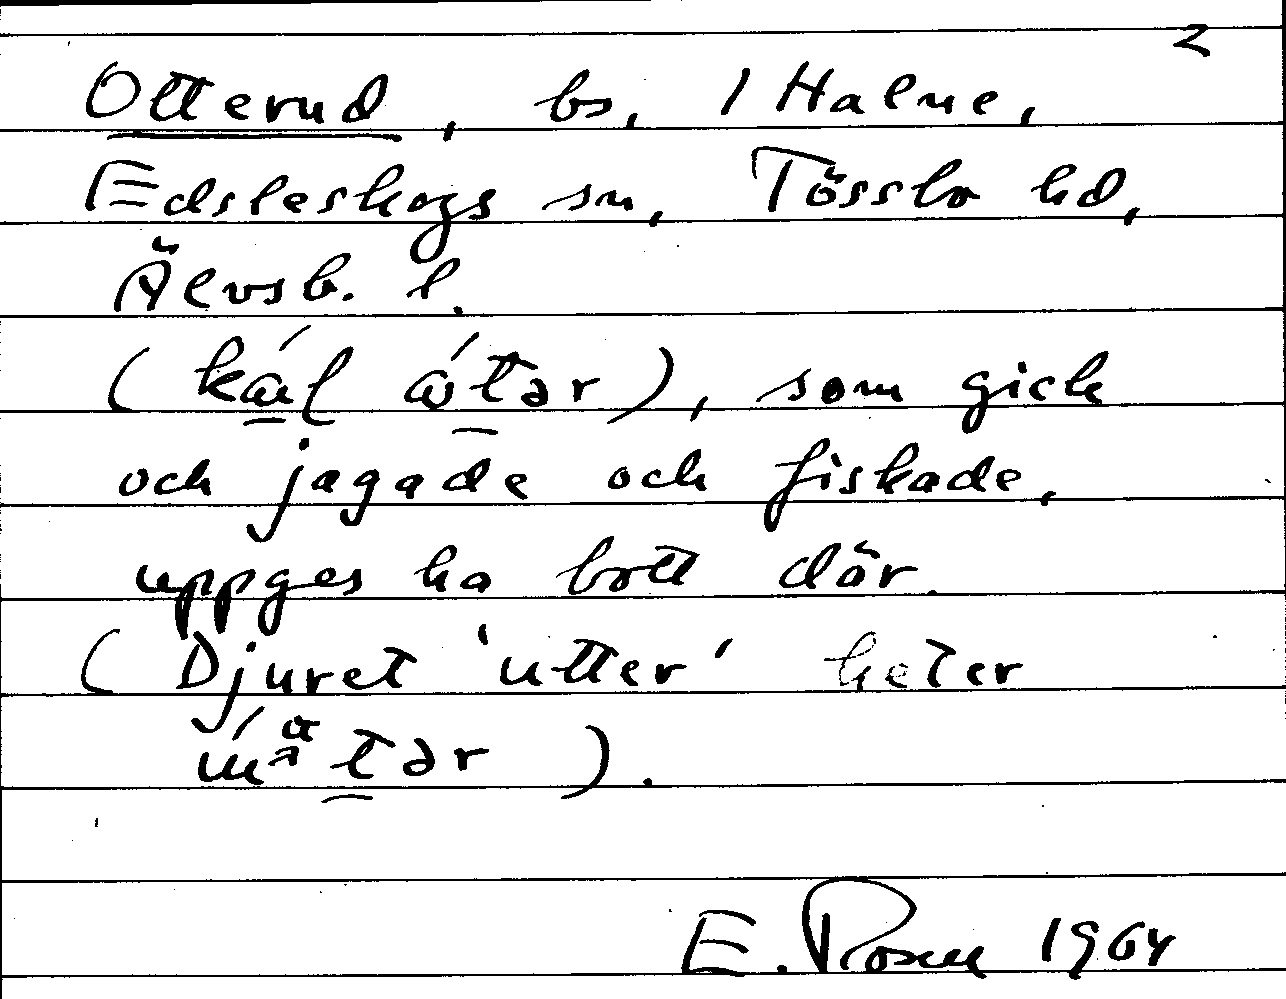 2
Otterud, bs, 1 Halne,
Edsleskogs sn, Tössbo hd,
Älvsb. l.
som gick
och jagade och fiskade,
uppges ha bott där.
(Djuret 'utter' heter
).
E. Rosen 1964